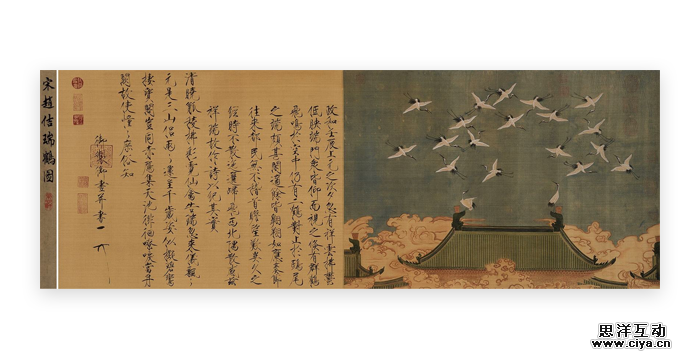 政和壬辰上元之次夕忽有祥雲拂鬱
低映端門衆皆仰而視之倏有群鶴
飛鳴於空中仍有二鶴對止於鴟尾
之端頗甚閑適餘皆翱翔如應奏節
往來都民無不稽首瞻望歎異久之
經時不散迤邐歸飛西北隅散感茲
祥瑞故作詩以紀其實
清曉觚稜拂彩霓仙禽告瑞忽來儀飄〻
元是三山侶兩〻還呈千歲姿似擬碧鸞
棲寶閣豈同赤鴈集天池徘徊嘹唳當丹
闕故使憧〻庶俗知
御製御畫并書
宋趙佶瑞鶴圖
思洋互动
www.ciya.cn